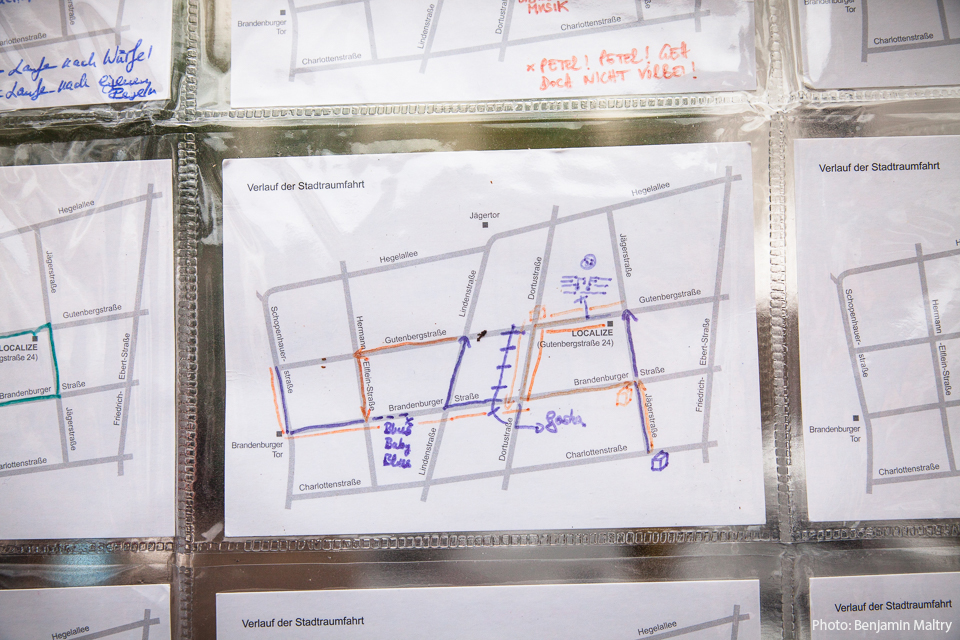 Charlottenstraße
- Laufe nach Würfel
- Laufe nach
Regeln
Brandenburger
Tor
Charlottenstraße
Lindenstraße
Dortustraße
MUSIK
Charlottenstraße
* PETER! PETER! GEH
DOCH NICHT VORBEI!
Brandenburger
Tor
Charlottenstraße
Hegelallee
Jägerstraße
Gutenbergstraße
LOCALIZE
(Gutenbergstraße 24)
Brandenburger Straße
Jägerstraße
Friedrich-Ebert-Straße
Charlottenstraße
Verlauf der Stadtraumfahrt
Jägertor
Hegelallee
Hegelallee
Schopenhauer-straße
Hermann-Elflein-Straße
Gutenbergstraße
Lindenstraße
Dortustraße
Jägerstraße
Gutenbergstraße
LOCALIZE
(Gutenbergstraße 24)
Friedrich-Ebert-Straße
Brandenburger Straße
Brandenburger Straße
Blue
Baby
Blue
Brandenburger
Tor
Lindenstraße
Dortustraße
Jägerstraße
Charlottenstraße
Charlottenstraße
Verlauf der Stadtraumfahrt
Schopenhauer-straße
Hermann-Elflein-Straße
Brandenburger
Tor
Charlottenstraße
Hegelallee
Verlauf der Stadtraumfahrt
Hegelallee
Verlauf der Stadtraumfahrt
Photo: Benjamin Maltry